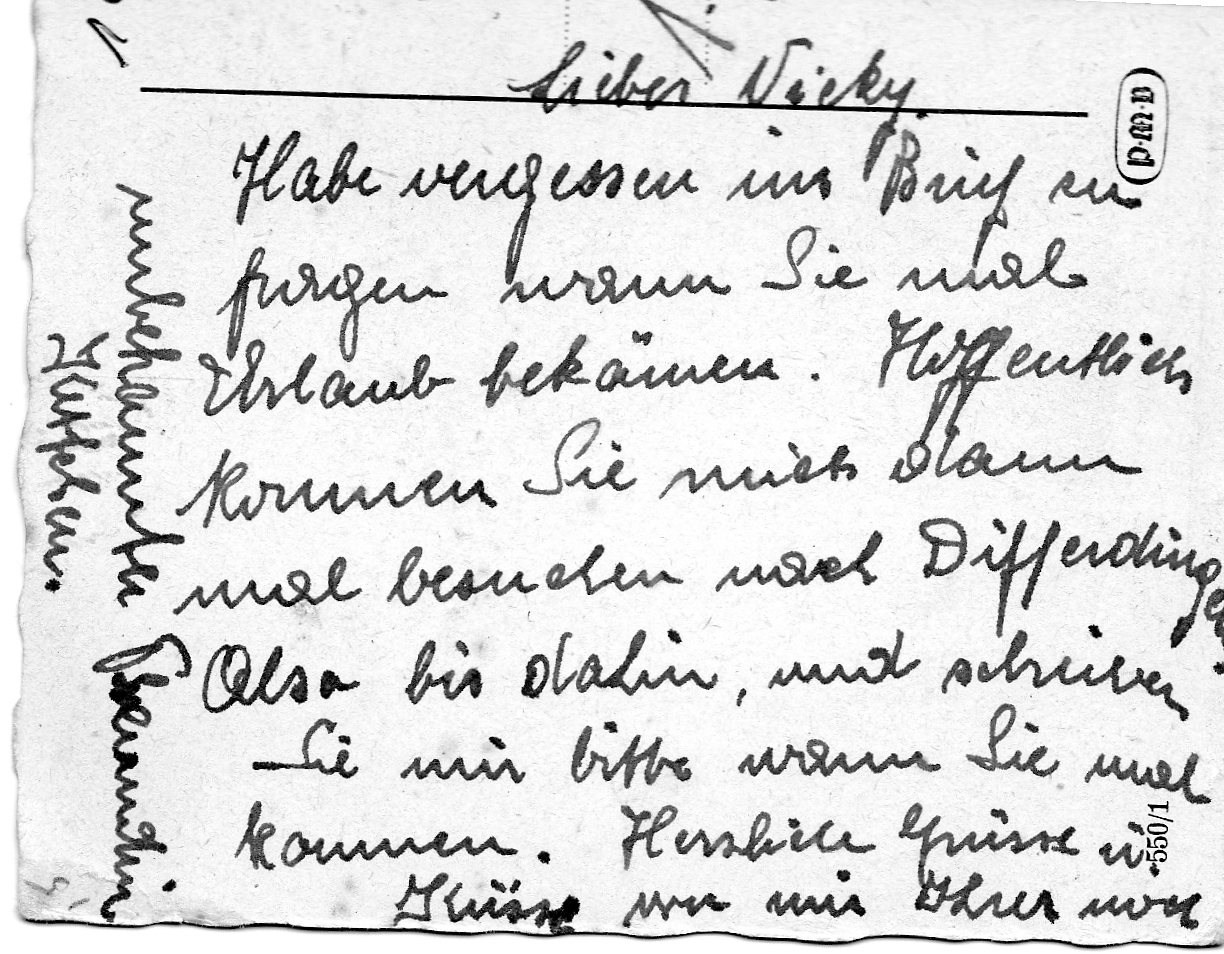 Lieber Nicky
Habe vergessen im Brief zu
fragen wann Sie mal
Urlaub bekämen. Hoffentlich
kommen Sie mich dann
mal besuchen nach Differdingen
Also bis dahin, und schreiben
Sie mir bitte wann Sie mal
kommen. Herzliche Grüsse u.
Küsse von mir Ihrer noch
unbekannten Freundin.
Käthchen.
P.M.B
550/1